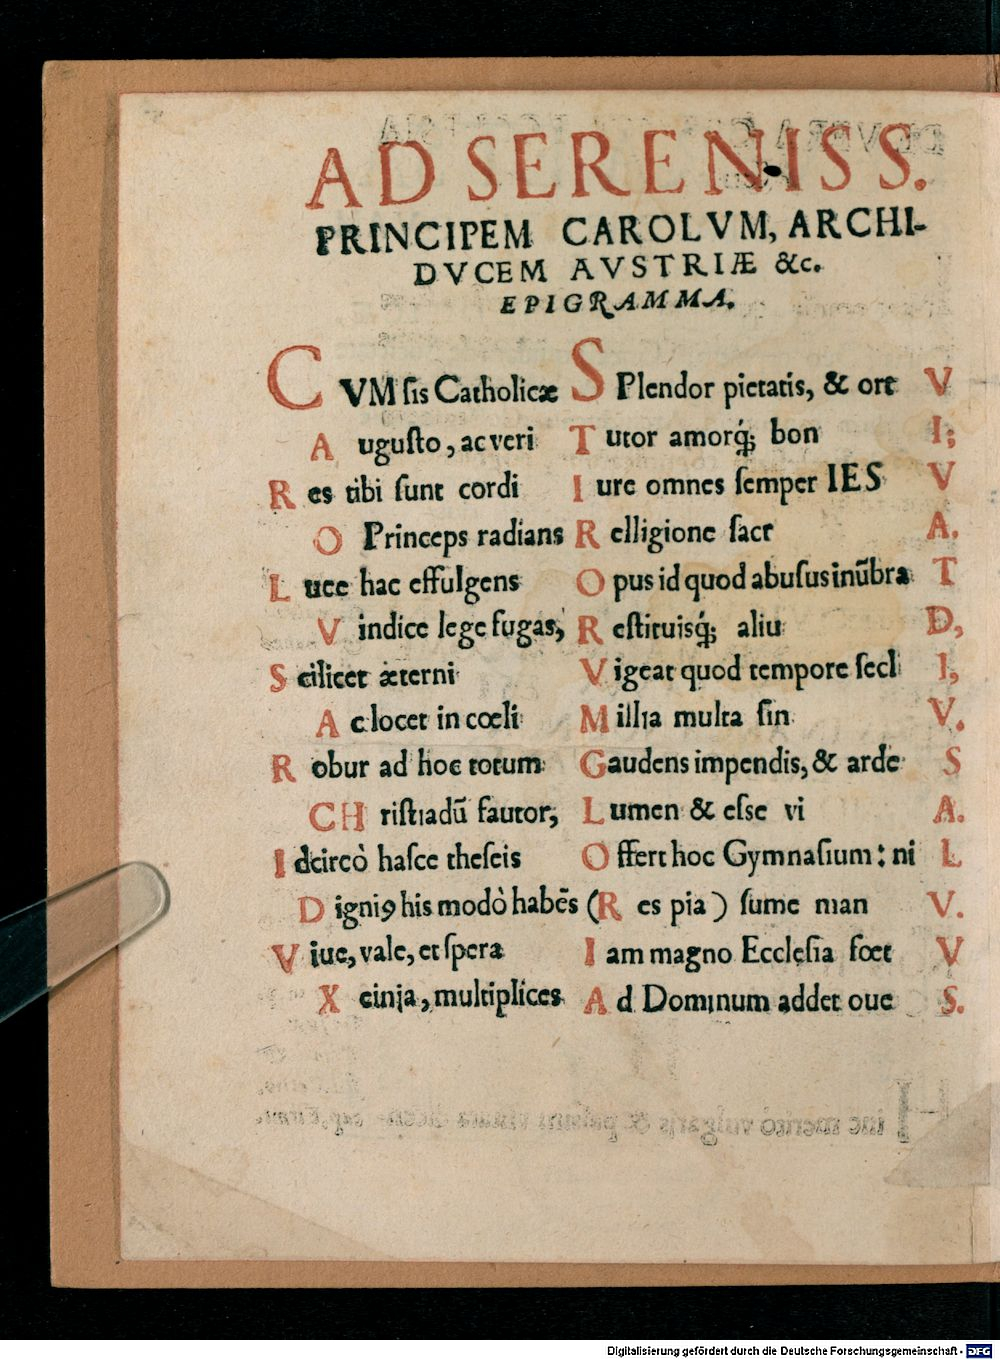 AD SERENISS.
PRINCIPEM CAROLVM, ARCHI-
DVCEM AVSTRIÆ &c.
EPIGRAMMA.
CVM sis Catholicæ SPlendor pietatis, & ort V
Augusto, ac veri Tutor amorq́; bon I;
Res tibi sunt cordi Iure omnes semper IES V
O Princeps radians Relligione sacr A.
Luce hac effulgens Opus id quod abusus inũbra T
Vindice lege fugas, Restituisq́; aliu D,
Scilicet æterni Vigeat quod tempore secl I,
Ac locet in cœli Millia multa sin V.
Robur ad hoc totum Gaudens impendis, & arde S
CHristiadũ fautor, Lumen & esse vi A.
Idcircò hasce theseis Offert hoc Gymnasium: ni L
Digniꝰ his modò habẽs (Res pia) sume man V.
Viue, vale, et spera Iam magno Ecclesia fœt V
Xeinia, multiplices Ad Dominum addet oue S.
Digitalisierung gefördert durch die Deutsche Forschungsgemeinschaft - DFG